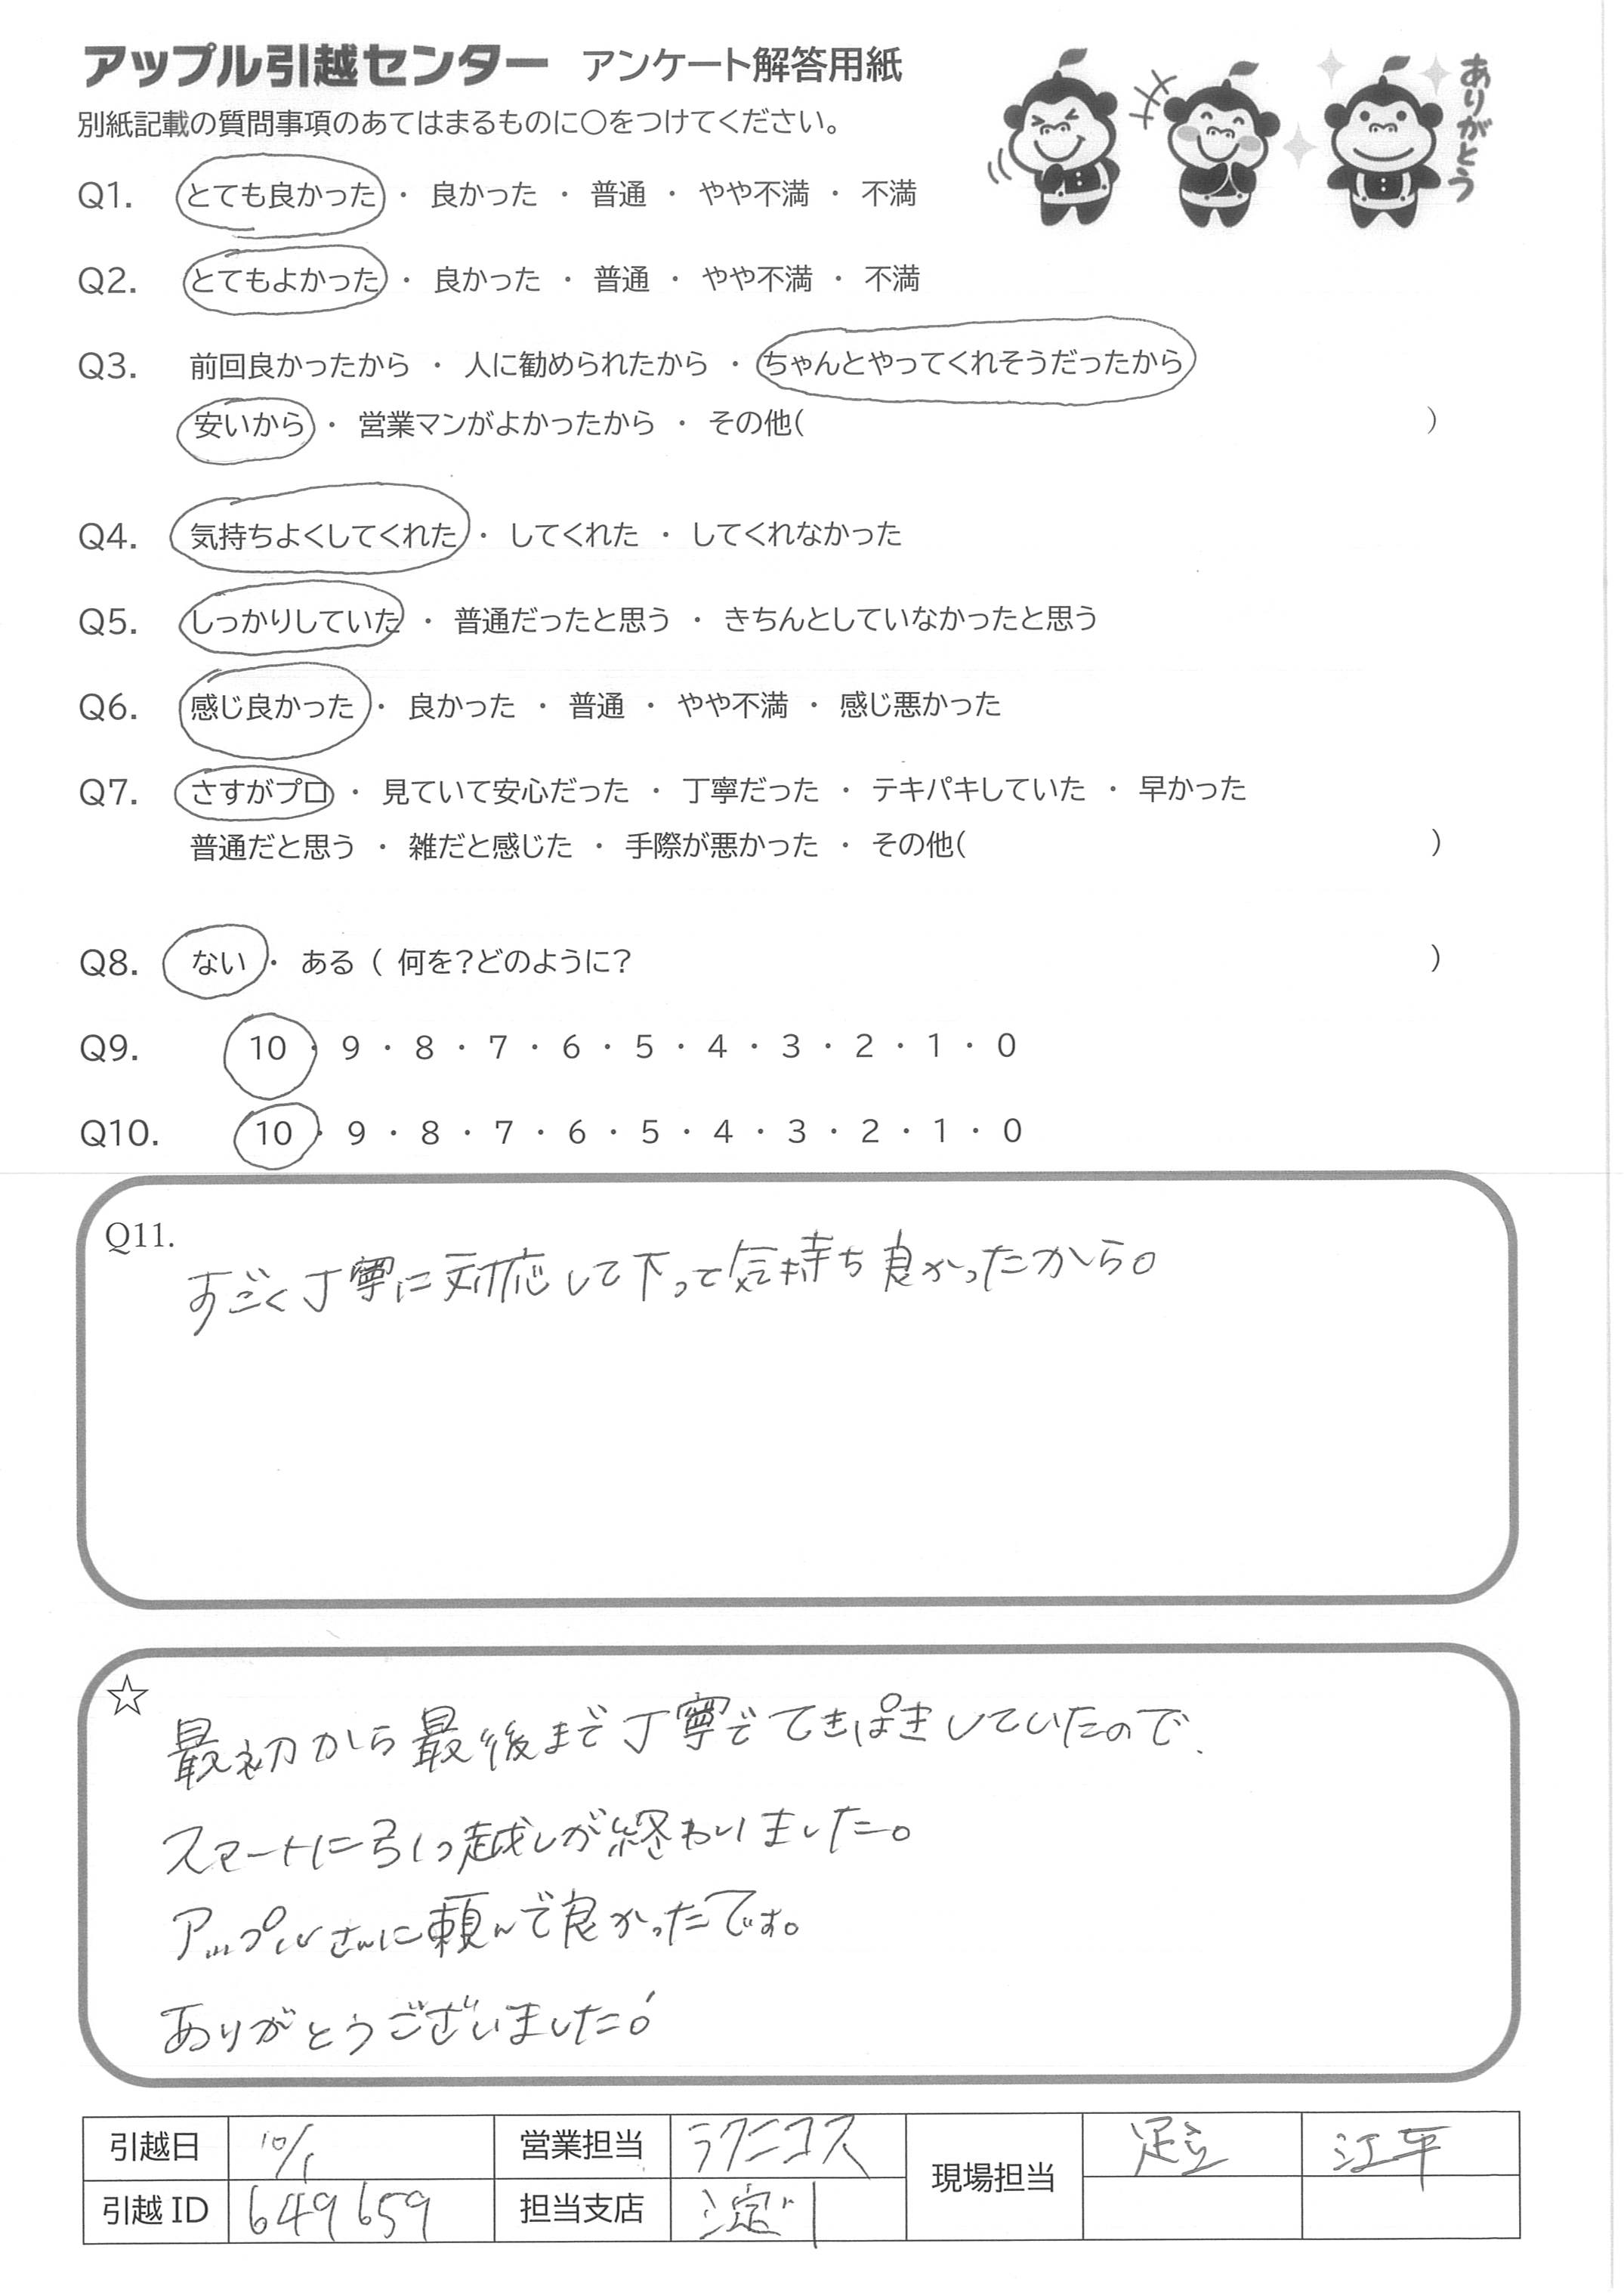 アップル引越センター アンケート解答用紙
ありがとう
別紙記載の質問事項のあてはまるものに○をつけてください。
Q1. とても良かった ・ 良かった ・ 普通 ・ やや不満 ・ 不満
Q2. とてもよかった ・ 良かった ・ 普通 ・ やや不満 ・ 不満
Q3. 前回良かったから ・ 人に勧められたから ・ ちゃんとやってくれそうだったから
安いから ・ 営業マンがよかったから ・ その他( )
Q4. 気持ちよくしてくれた ・ してくれた ・ してくれなかった
Q5. しっかりしていた ・ 普通だったと思う ・ きちんとしていなかったと思う
Q6. 感じ良かった ・ 良かった ・ 普通 ・ やや不満 ・ 感じ悪かった
Q7. さすがプロ ・ 見ていて安心だった ・ 丁寧だった ・ テキパキしていた ・ 早かった
普通だと思う ・ 雑だと感じた ・ 手際が悪かった ・ その他( )
Q8. ない ・ ある ( 何を?どのように? )
Q9. 10 ・ 9 ・ 8 ・ 7 ・ 6 ・ 5 ・ 4 ・ 3 ・ 2 ・ 1 ・ 0
Q10. 10 ・ 9 ・ 8 ・ 7 ・ 6 ・ 5 ・ 4 ・ 3 ・ 2 ・ 1 ・ 0
Q11.
すごく丁寧に対応して下って気持ち良かったから。
☆
最初から最後まで丁寧でてきぱきしていたので、
スマートに引っ越しが終わりました。
アップルさんに頼んで良かったです。
ありがとうございました!
引越日 10/1 営業担当 ラクニコス 現場担当 足立 江平
引越ID 649659 担当支店 淀川